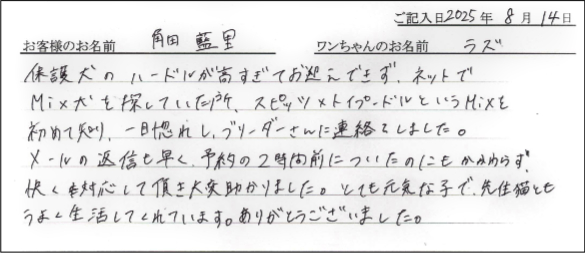 ご記入日2025年 8月 14日
お客様のお名前 角田 藍里 ワンちゃんのお名前 ラズ
保護犬のハードルが高すぎてお迎えできず、ネットで
Mix犬を探していた所、スピッツ×トイプードルというMixを
初めて知り、一目惚れし、ブリーダーさんに連絡をしました。
メールの返信も早く、予約の2時間前についたのにもかかわらず、
快くも対応して頂き大変助かりました。とても元気な子で、先住猫とも
うまく生活してくれています。ありがとうございました。